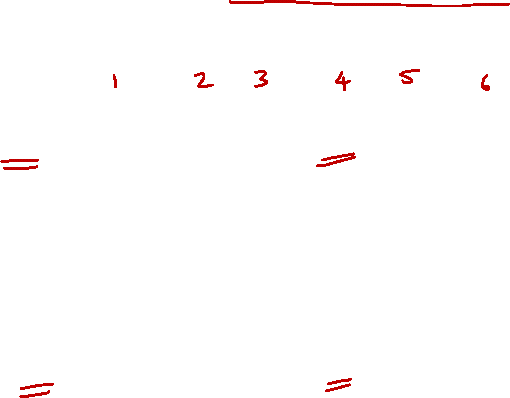 1 2 3 4 5 6
= =
= =